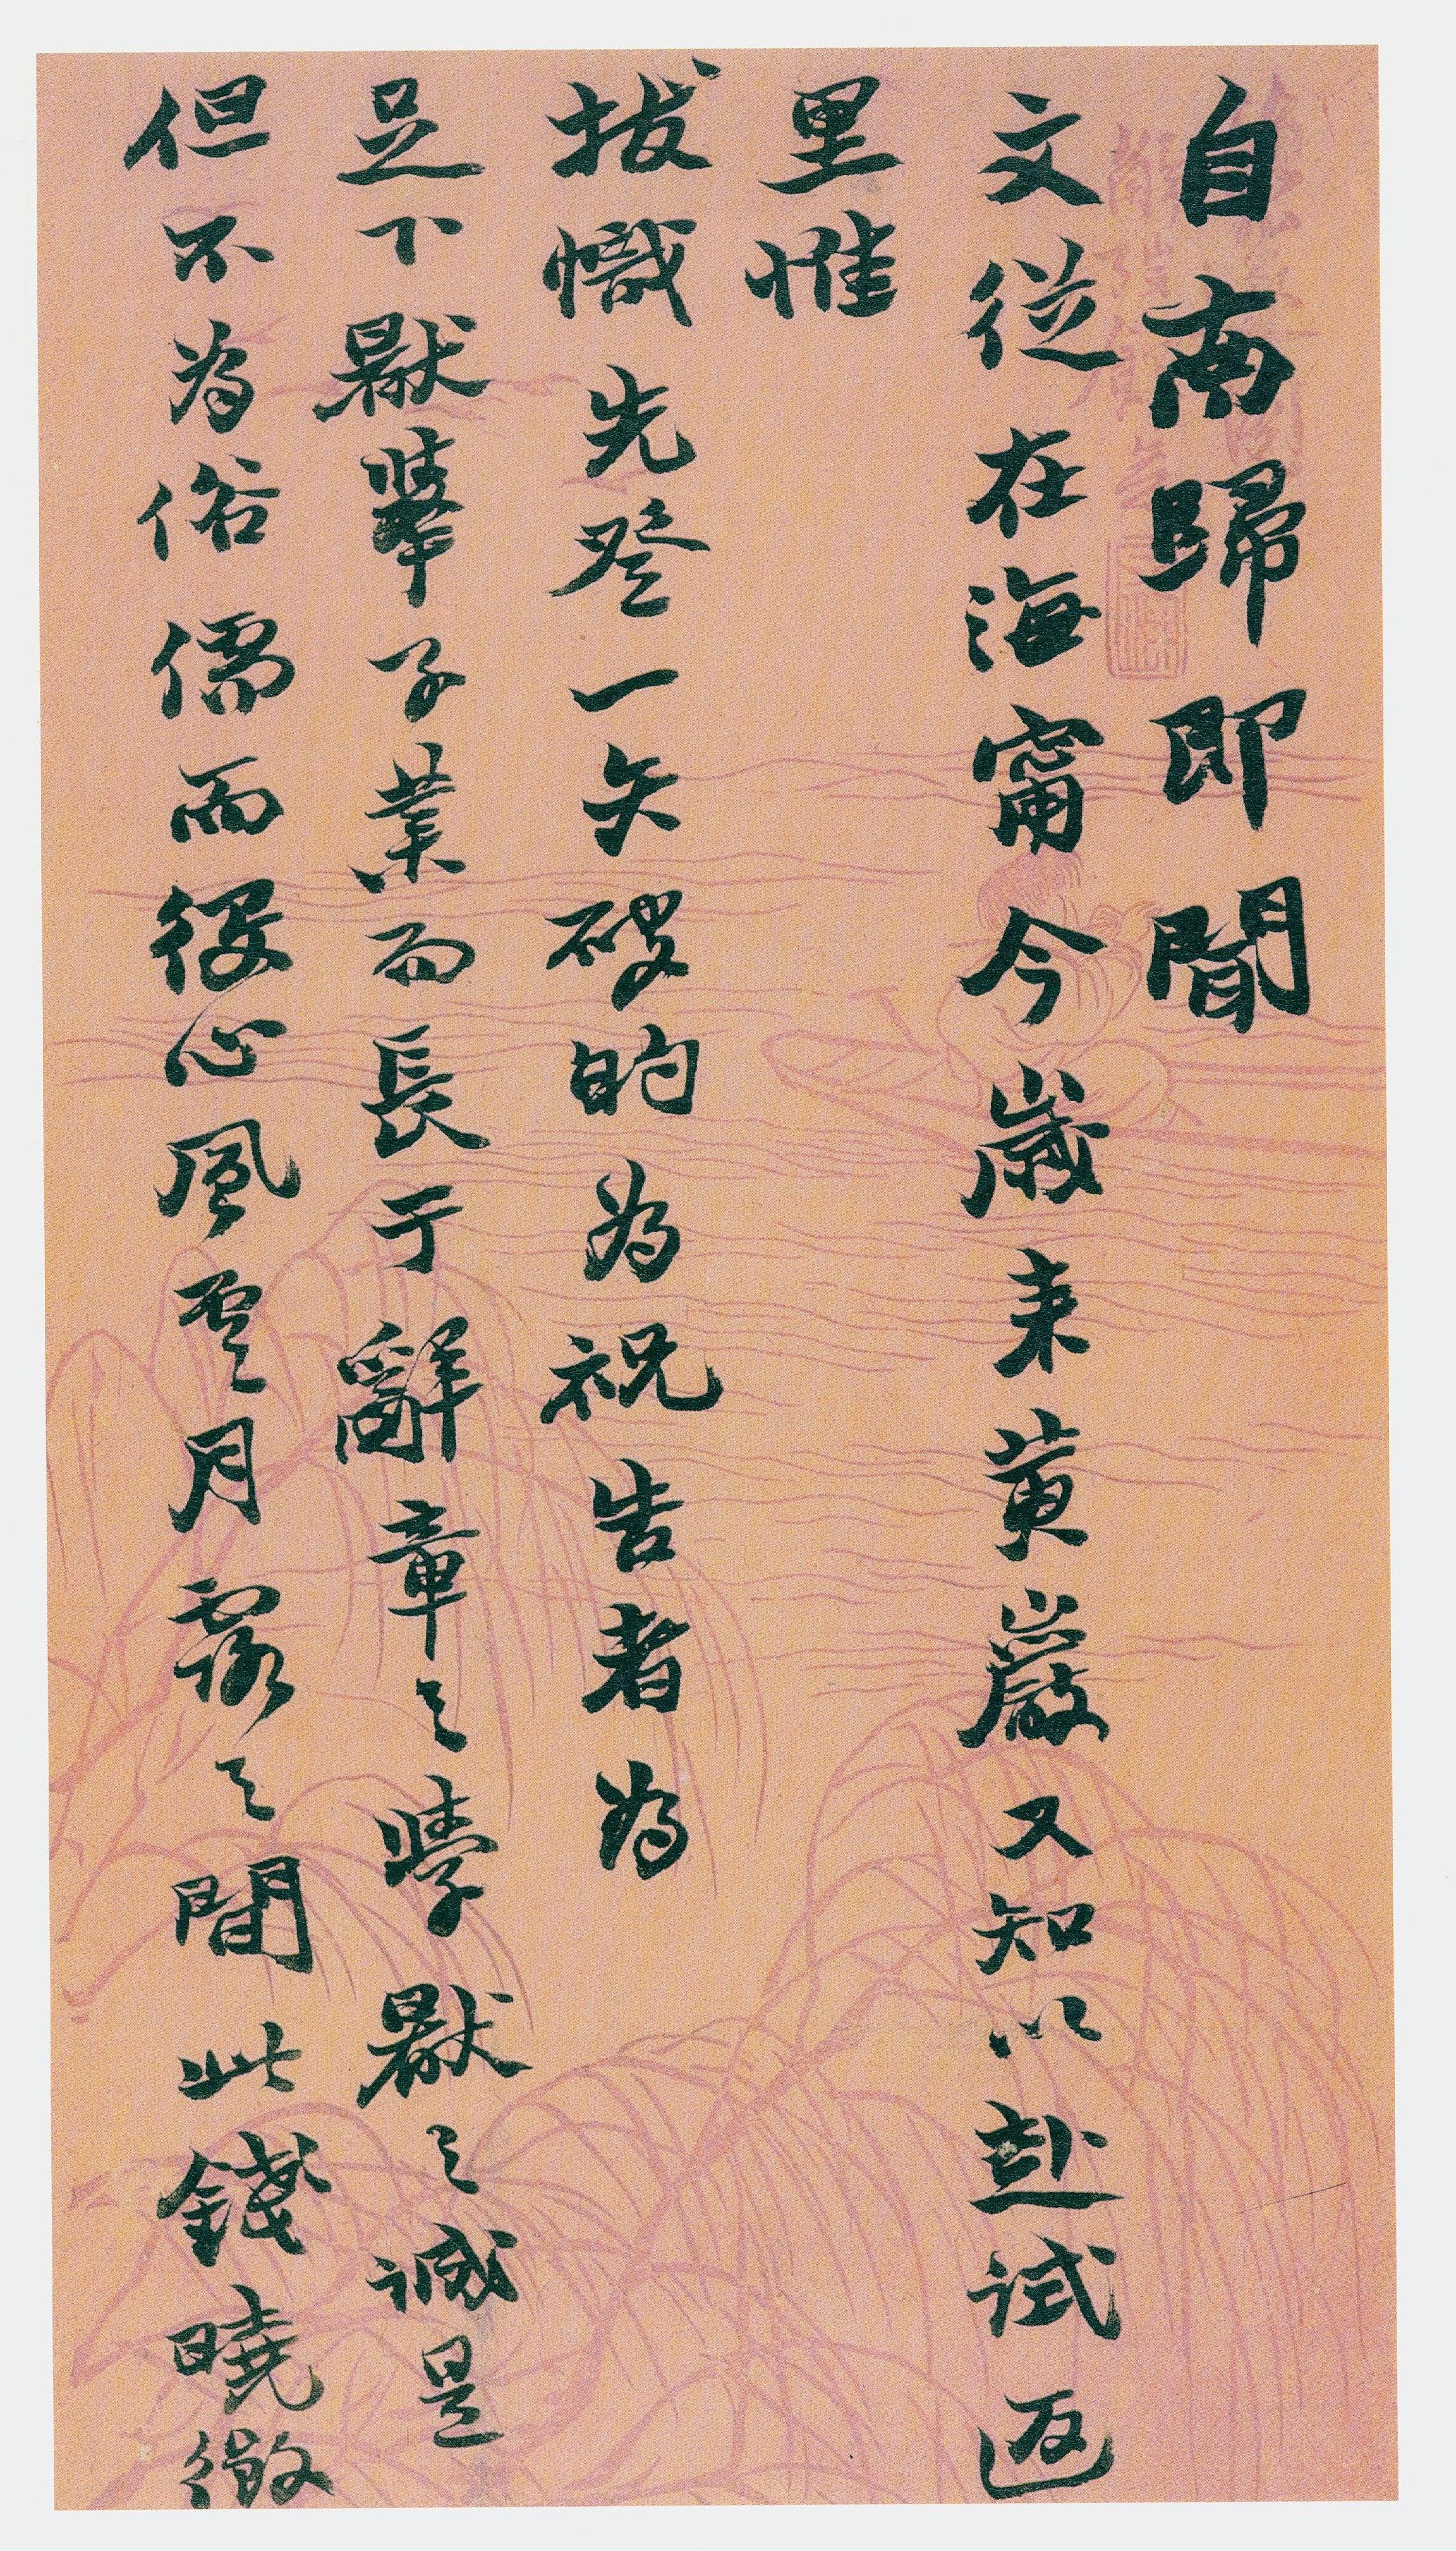 自南歸即聞
文從在海甯今歲来黄巖又知以赴試返
里惟
拔幟先登一矢破的為祝告者為
足下厭舉子業而長于辭章之學厭之誠是
但不為俗儒而役心風雲月露之間此錢曉徵